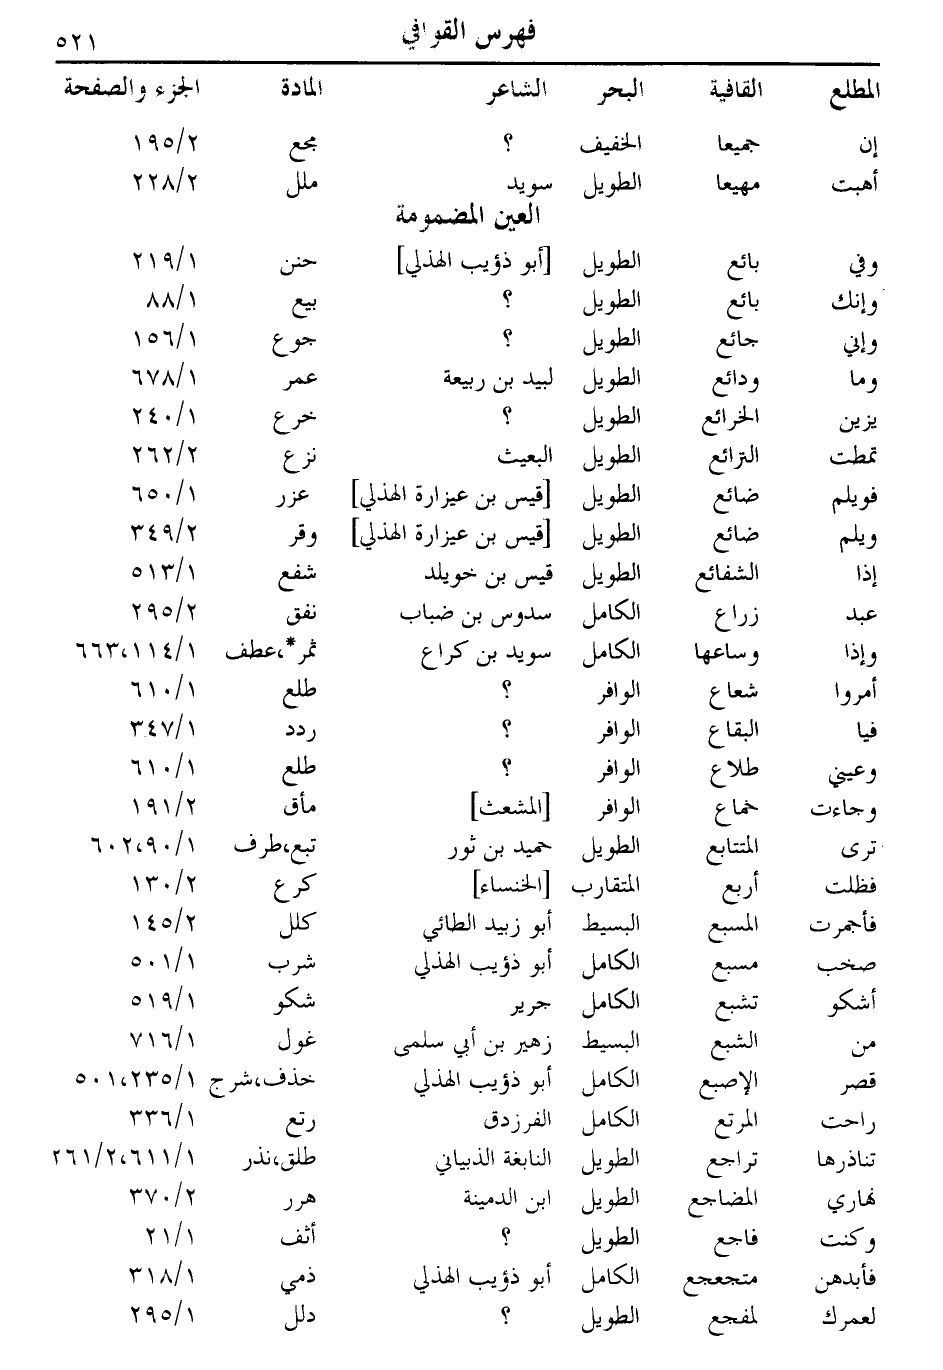 فهرس القوافي ٥٢١
المطلع القافية البحر الشاعر المادة الجزء والصفحة
إن جميعا الخفيف ؟ مجع ١٩٥/٢
أهبت مهيعا الطويل سويد ملل ٢٢٨/٢
العين المضمومة
وفي بائع الطويل [أبو ذؤيب الهذلي] حنن ٢١٩/١
وإنك بائع الطويل ؟ بيع ٨٨/١
وإني جائع الطويل ؟ جوع ١٥٦/١
وما ودائع الطويل لبيد بن ربيعة عمر ٦٧٨/١
يزين الخرائع الطويل ؟ خرع ٢٤٠/١
تمطت الترائع الطويل البعيث نزع ٢٦٢/٢
فويلم ضائع الطويل [قيس بن عيزارة الهذلي] عزر ٦٥٠/١
ويلم ضائع الطويل [قيس بن عيزارة الهذلي] وقر ٣٤٩/٢
إذا الشفائع الطويل قيس بن خويلد شفع ٥١٣/١
عبد زراع الكامل سدوس بن ضباب نفق ٢٩٥/٢
وإذا وساعها الكامل سويد بن كراع ثمر*،عطف ٦٦٣،١١٤/١
أمروا شعاع الوافر ؟ طلع ٦١٠/١
فيا البقاع الوافر ؟ ردد ٣٤٧/١
وعيني طلاع الوافر ؟ طلع ٦١٠/١
وجاءت خماع الوافر [المشعث] مأق ١٩١/٢
ترى المتتابع الطويل حميد بن ثور تبع،طرف ٦٠٢،٩٠/١
فظلت أربع المتقارب [الخنساء] كرع ١٣٠/٢
فأجمرت المسبع البسيط أبو زبيد الطائي كلل ١٤٥/٢
صخب مسبع الكامل أبو ذؤيب الهذلي شرب ٥٠١/١
أشكو تشبع الكامل جرير شكو ٥١٩/١
من الشبع البسيط زهير بن أبي سلمى غول ٧١٦/١
قصر الإصبع الكامل أبو ذؤيب الهذلي خذف،شرج ٥٠١،٢٣٥/١
راحت المرتع الكامل الفرزدق رتع ٣٣٦/١
تناذرها تراجع الطويل النابغة الذبياني طلق،نذر ٢٦١/٢،٦١١/١
نهاري المضاجع الطويل ابن الدمينة هرر ٣٧٠/٢
وكنت فاجع الطويل ؟ أثف ٢١/١
فأبدهن متجعجع الكامل أبو ذؤيب الهذلي ذمي ٣١٨/١
لعمرك لمفجع الطويل ؟ دلل ٢٩٥/١